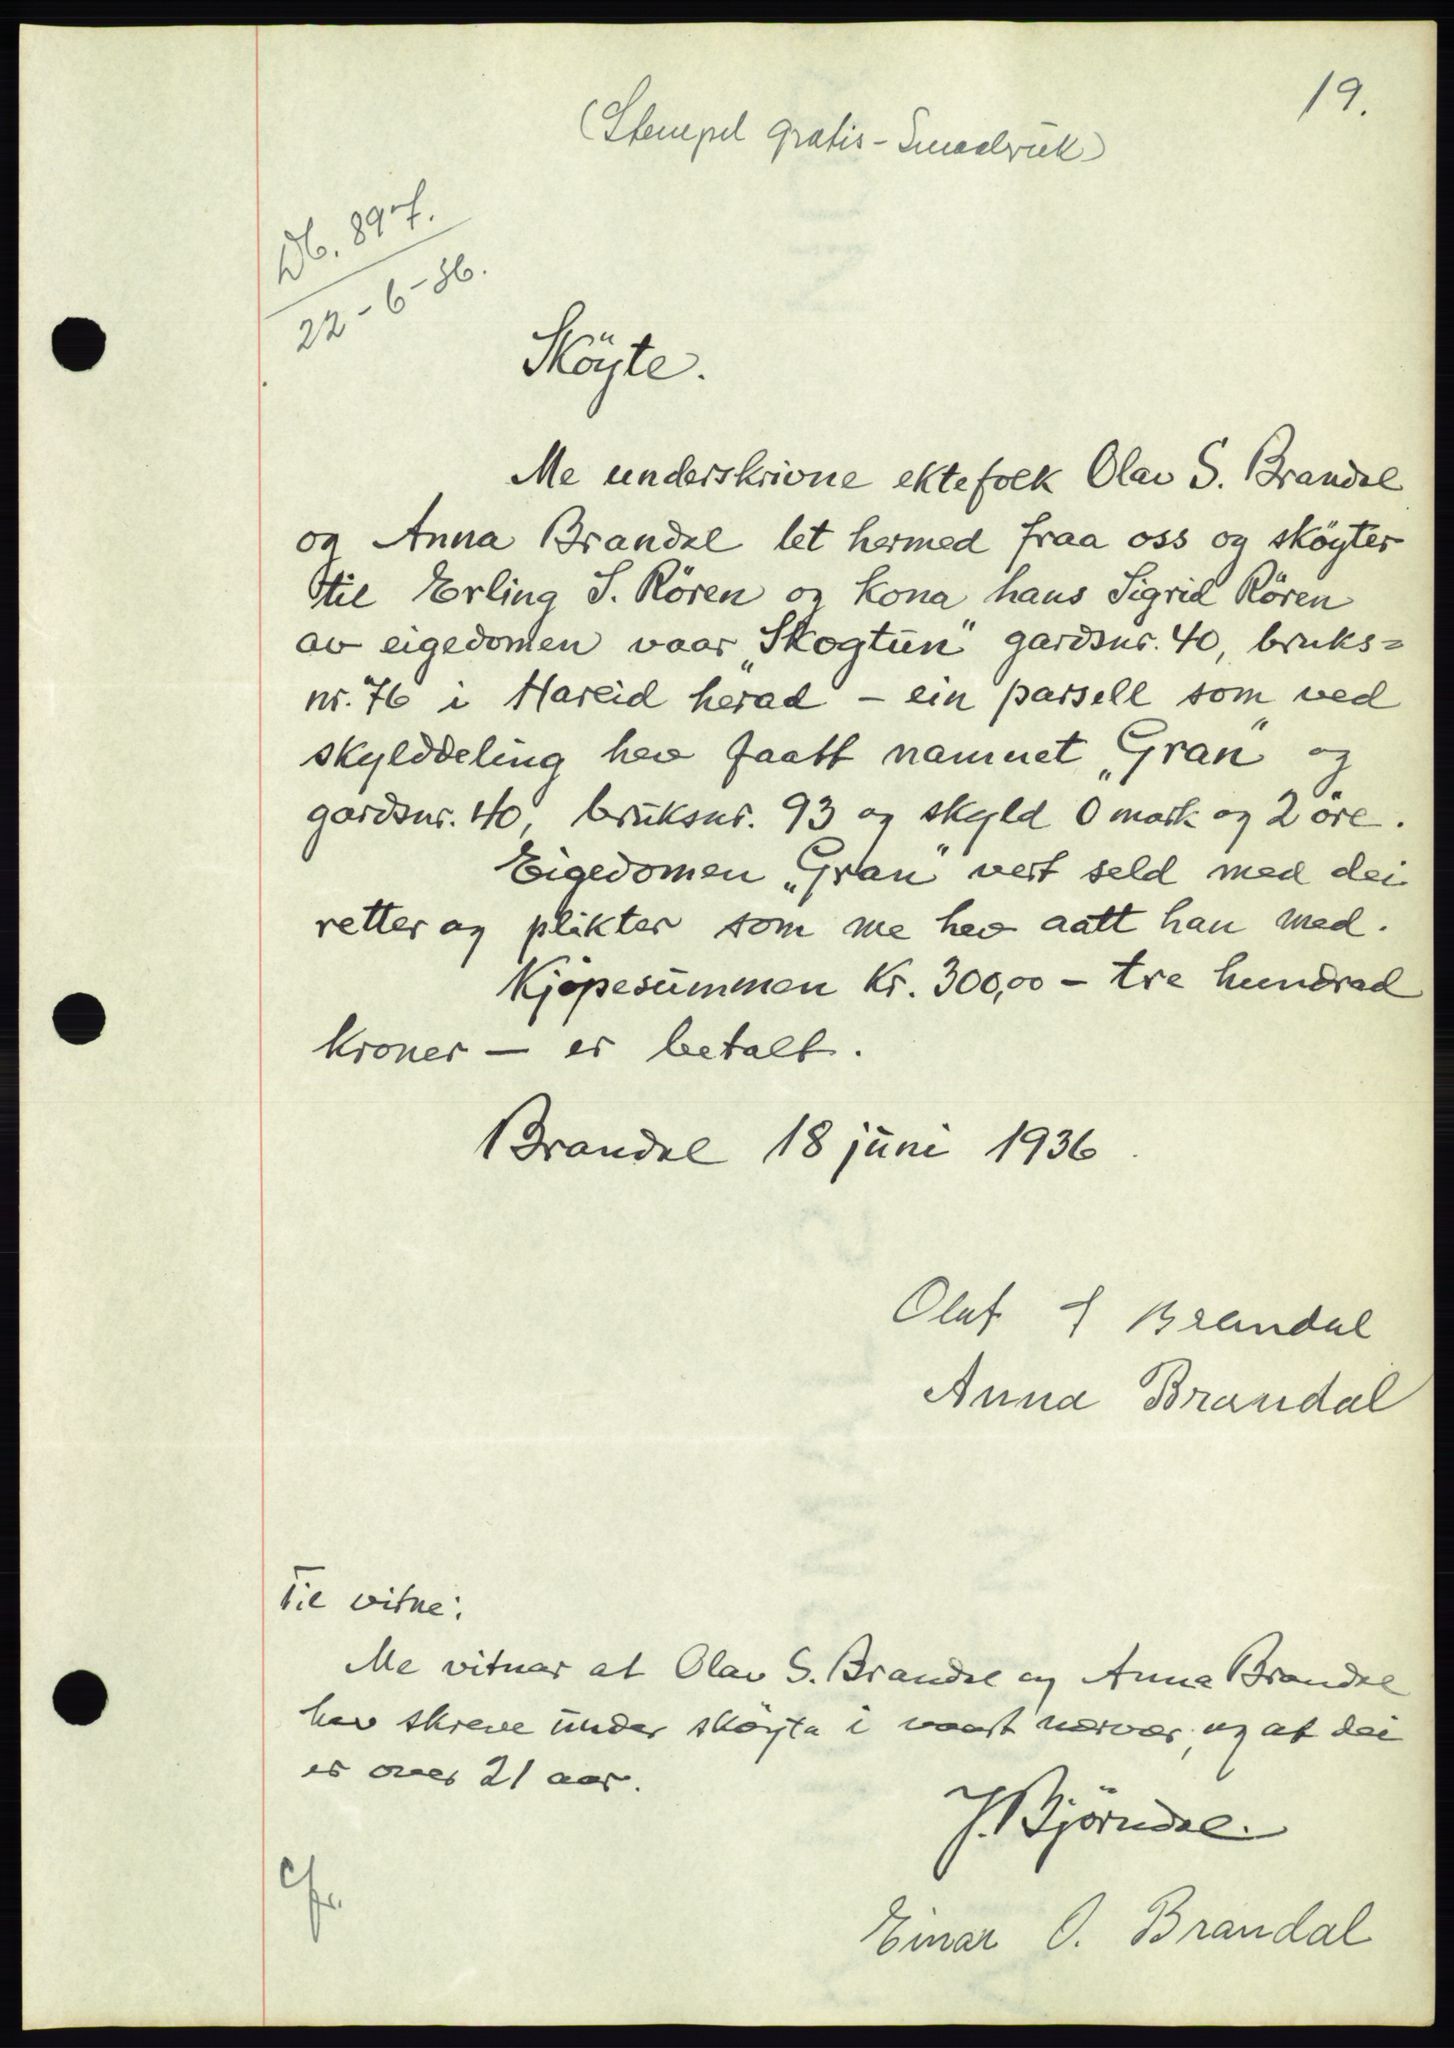 19.
(Stempel gratis - Smaabruk)
Db. 897.
22-6-36.
Sköyte.
Me underskrivne ektefolk Olav S. Brandal
og Anna Brandal let hermed fraa oss og sköyter
til Erling S. Rören og kona hans Sigrid Rören
av eigedomen vaar „Skogtun" gardsnr. 40, bruks=
nr. 76 i Hareid herad – ein parsell som ved
skylddeling hev faatt namnet „Gran" og
gardsnr. 40, bruksnr. 93 og skyld 0 mark og 2 öre.
Eigedomen „Gran" vert seld med dei
retter og plikter som me hev aatt han med.
Kjöpesummen Kr. 300,00 – tre hundrad
kroner – er betalt.
Brandal 18 juni 1936
Olaf S Brandal
Anna Brandal
Til vitne:
Me vitnar at Olav S. Brandal og Anna Brandal
hev skreve under sköyta i vaart nærvær, og at dei
er over 21 aar.
J. Björndal.
Einar O. Brandal